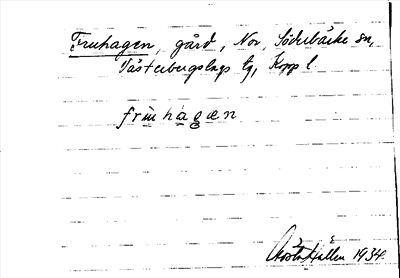 Fruhagen, gård, Nor, Söderbärke sn,
Västerbergslags tg, Kopp l.
frùhàgæn
Gösta Hallén 1934.